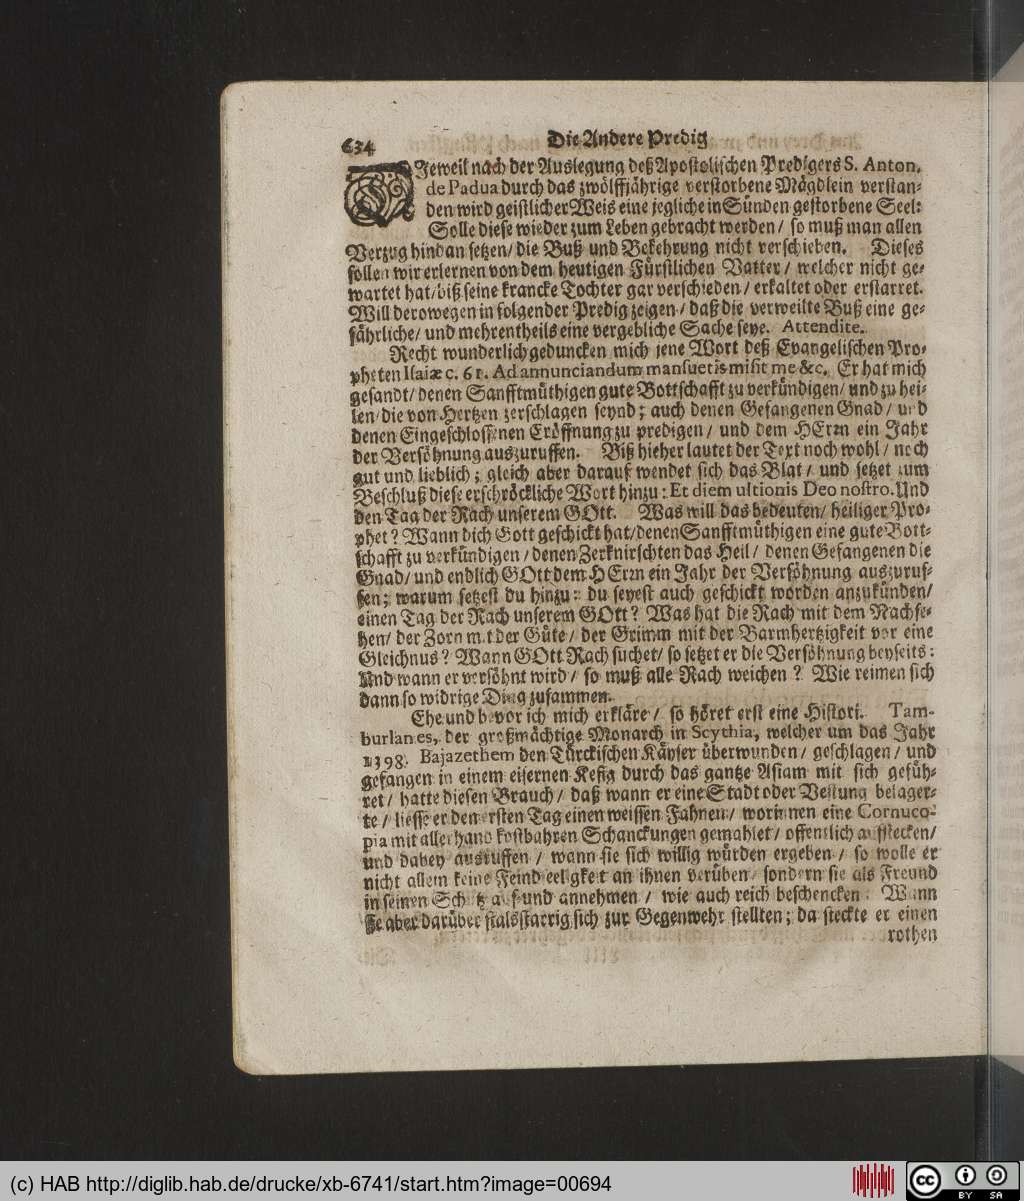 634
Die Andere Predig
DJeweil nach der Auslegung deß Apostolischen Predigers S. Anton.
de Padua durch das zwölffjährige verstorbene Mägdlein verstan-
den wird geistlicher Weis eine jegliche in Sünden gestorbene Seel:
Solle diese wieder zum Leben gebracht werden / so muß man allen
Verzug hindan setzen / die Buß und Bekehrung nicht verschieben. Dieses
sollen wir erlernen von dem heutigen Fürstlichen Vatter / welcher nicht ge-
wartet hat / biß seine krancke Tochter gar verschieden / erkaltet oder erstarret.
Will derowegen in folgender Predig zeigen / daß die verweilte Buß eine ge-
fährliche / und mehrentheils eine vergebliche Sache seye. Attendite.
Recht wunderlich geduncken mich jene Wort deß Evangelischen Pro-
pheten Isaiæ c. 61. Ad annunciandum mansuetis misit me &c. Er hat mich
gesandt / denen Sanfftmüthigen gute Bottschafft zu verkündigen / und zu hei-
len / die von Hertzen zerschlagen seynd; auch denen Gefangenen Gnad / und
denen Eingeschlossenen Eröffnung zu predigen / und dem HErrn ein Jahr
der Versöhnung auszuruffen. Biß hieher lautet der Text noch wohl / noch
gut und lieblich; gleich aber darauf wendet sich das Blat / und setzet zum
Beschluß diese erschröckliche Wort hinzu: Et diem ultionis Deo nostro. Und
den Tag der Rach unserem GOtt. Was will das bedeuten / heiliger Pro-
phet? Wann dich Gott geschickt hat / denen Sanfftmüthigen eine gute Bott-
schafft zu verkündigen / denen Zerknirschten das Heil / denen Gefangenen die
Gnad / und endlich GOtt dem HErrn ein Jahr der Versöhnung auszuruf-
fen; warum setzest du hinzu: du seyest auch geschickt worden anzukünden /
einen Tag der Rach unserem GOtt? Was hat die Rach mit dem Nachse-
hen / der Zorn mit der Güte / der Grimm mit der Barmhertzigkeit vor eine
Gleichnus? Wann GOtt Rach suchet / so setzet er die Versöhnung beyseits:
Und wann er versöhnt wird / so muß alle Rach weichen? Wie reimen sich
dann so widrige Ding zusammen.
Ehe und bevor ich mich erkläre / so höret erst eine Histori. Tam-
burlanes, der großmächtige Monarch in Scythia, welcher um das Jahr
1398. Bajazethem den Türckischen Käyser überwunden / geschlagen / und
gefangen in einem eisernen Kefig durch das gantze Asiam mit sich gefüh-
ret / hatte diesen Brauch / daß wann er eine Stadt oder Vestung belager-
te / liesse er den ersten Tag einen weissen Fahnen / worinnen eine Cornuco-
pia mit allerhand kostbahren Schanckungen gemahlet / offentlich aufstecken /
und dabey ausruffen / wann sie sich willig würden ergeben / so wolle er
nicht allein keine Feindseeligkeit an ihnen verüben / sondern sie als Freund
in seinen Schutz auf und annehmen / wie auch reich beschencken: Wann
sie aber darüber halsstarrig sich zur Gegenwehr stellten; da steckte er einen
rothen
(c) HAB http://diglib.hab.de/drucke/xb-6741/start.htm?image=00694
cc BY SA